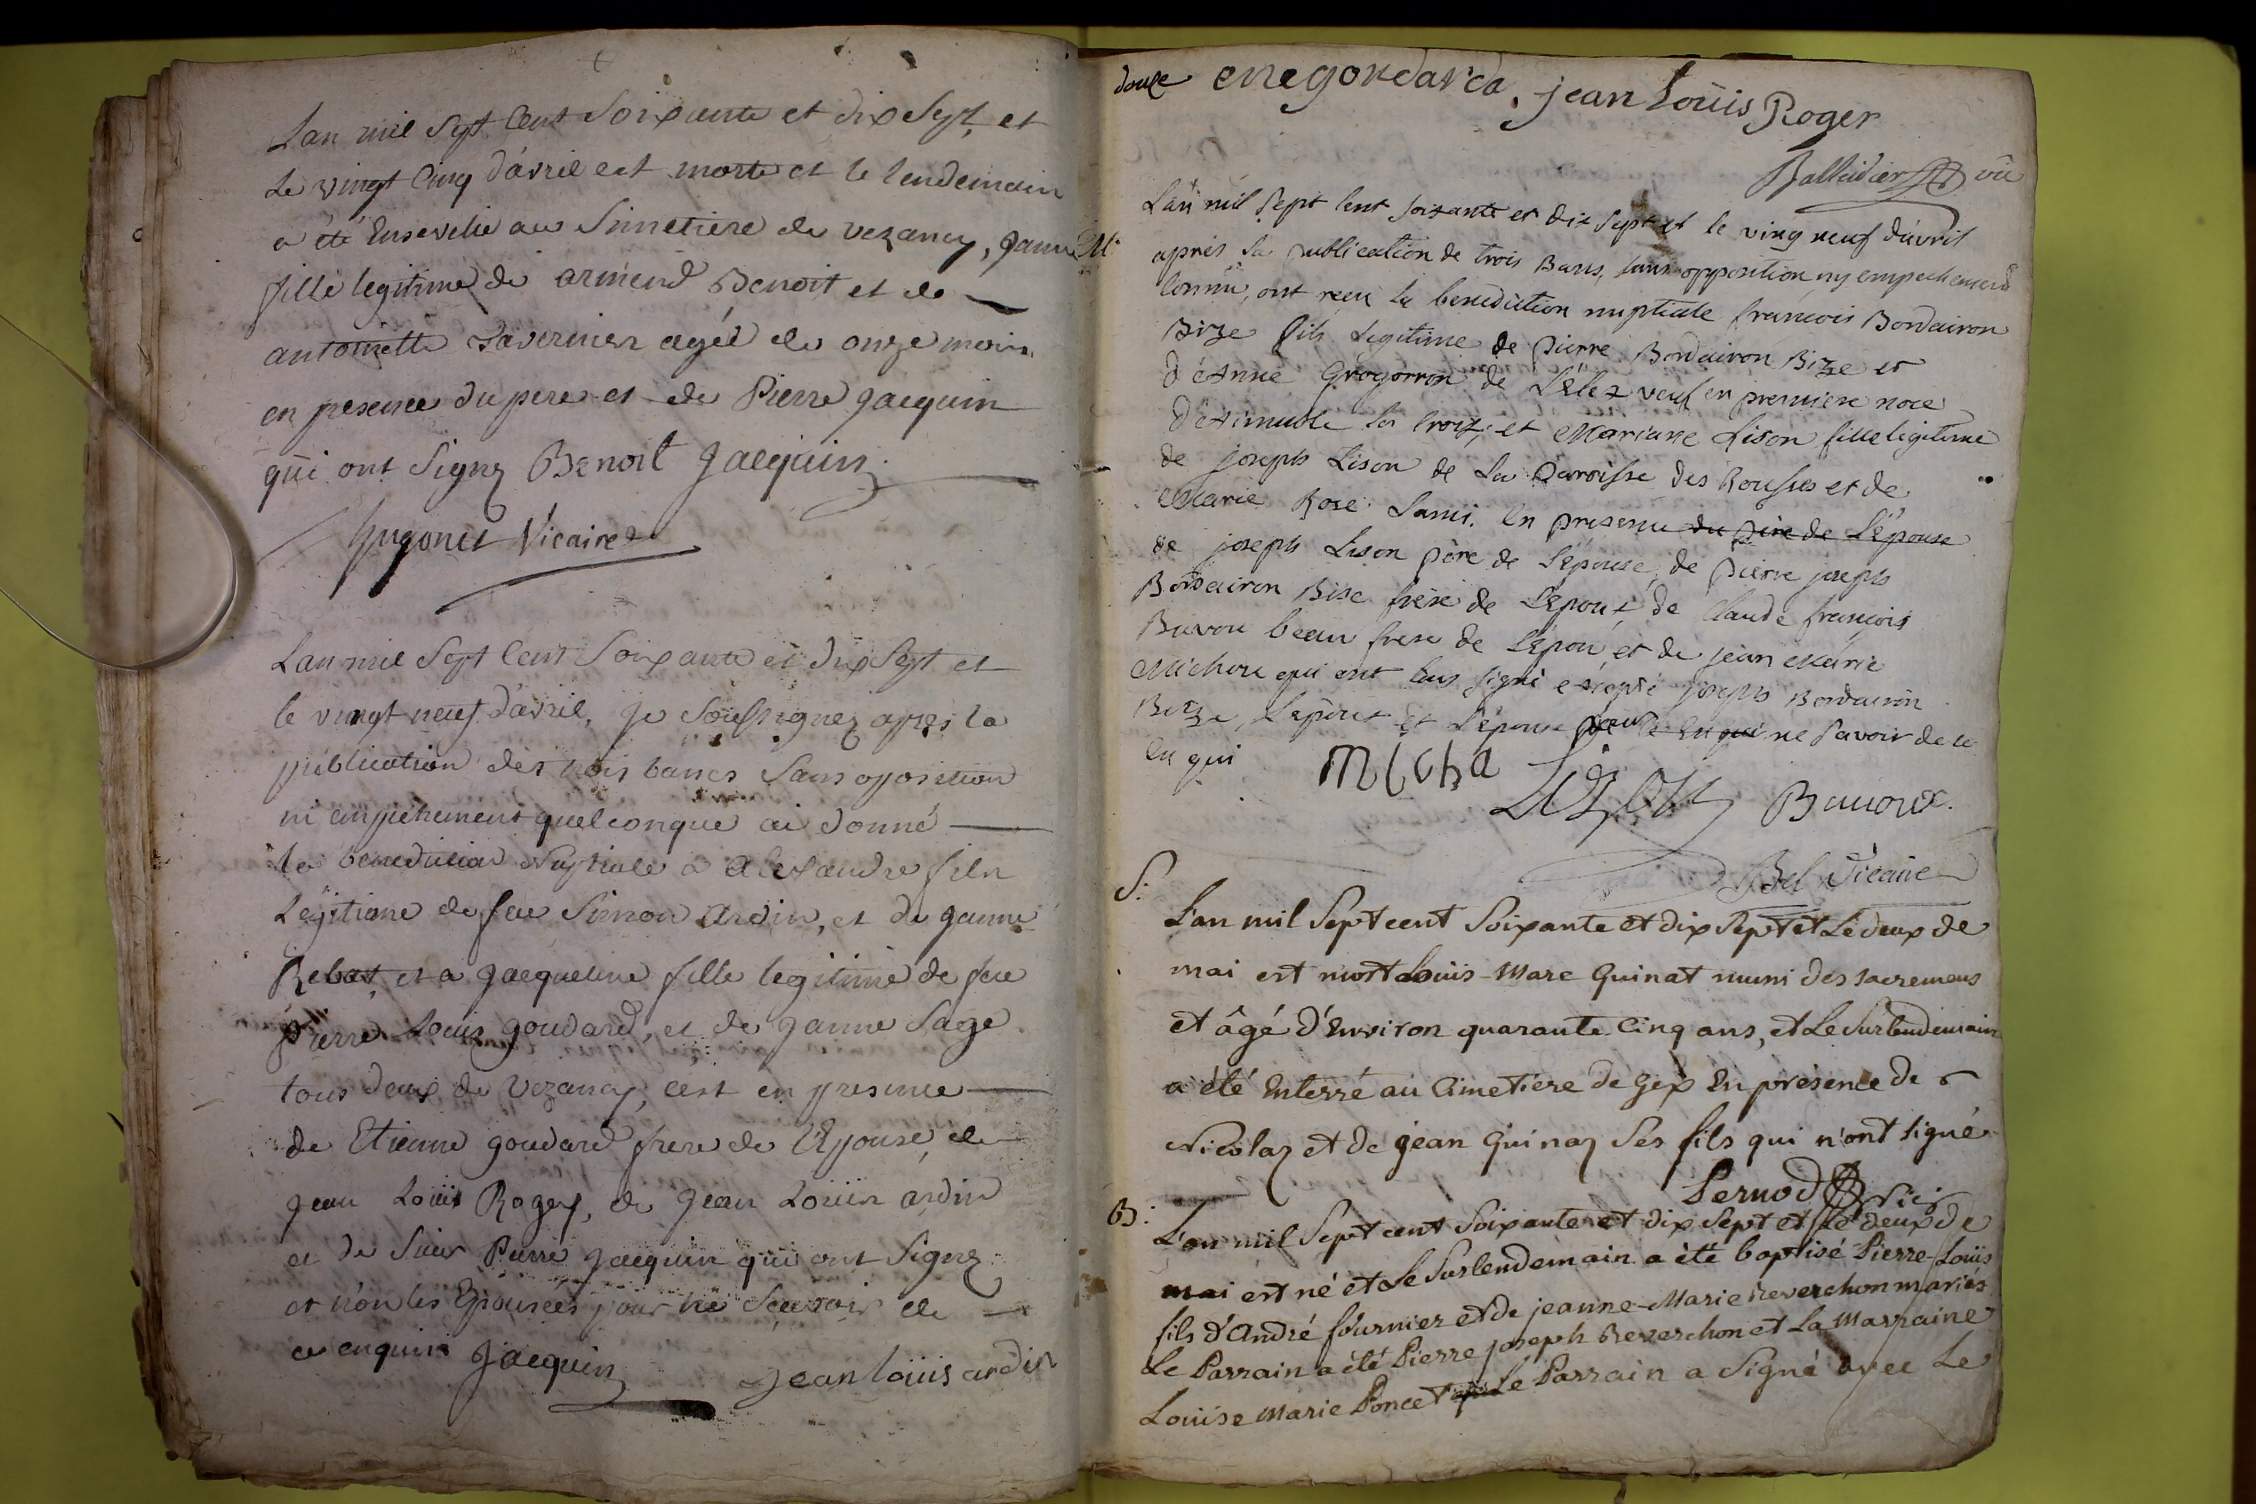 Lan mil Sept Cent Soixante et dix Sept, et
Le vingt Cinq d'avril est morte et le lendemain
a été Ensevelie au Simetiere de vezancy, Janne
fille legitime de armend Benoit et de
antoinette Tavernier agée de onze mois.
en presence du pere et de Pierre Jacquin
qui ont Signez Benoit Jacquin
hugonet Vicaire
Lan mil Sept Cent Soixante et dix Sept et
le vingt neuf d'avril, Je Soussignez apres la
publication des trois bancs Sans oposition
ni empechement quelconque ai donné
la benediction Nuptiale a alexandre fils
Legitime de feu Simon Ardin, et de Janne
Rebat, et a Jacqueline fille legitime de feu
Pierre Louis goudard, et de Janne Sage
tous deux de Vezancy, cest en presence
de Etienne goudard frere de L'Epouse, de
Jean Louis Rogey, de Jean Louis ardin
et de Sieur Pierre Jacquin qui ont Signez
et non les Epousées pour ne Scavoir de
ce enquis Jacquin Jean louis ardin
Jean Louis Roger
Ballaidier vic
M:
L'an mil Sept Cent soixante et dix Sept et le ving neuf d'avril
apres la publication de trois Bans, sans opposition ny empechement
Connu, ont reçu la benediction nuptiale francois Bondairon
Bize fils Legitime de Pierre Bondairon Bize et
d'Anne Grogorron de Lélex veuf en premiere noce
la Croix, et Mariane Lison fille legitime
de joseph Lison de La Paroisse des Rousses et de
Marie Rose Lami. En presence du Pere de L'épouse
de joseph Lison Père de L'épouse, de Pierre joseph
Bondairon Bise frere de L'epoux, de Claude francois
Buvou beau frere de L'epou, et de jean Marie
Michou qui ont tous signé excepté joseph Bondairon
Bize, L'epoux et L'épouse pour ne Savoir de ce
En qui
Micha Lison Bauoux.
Bel Vicaire
S:
L'an mil Sept cent Soixante et dix Sept et Le deux de
mai est mort Loüis-Marc Quinat muni des sacremens
et âgé d'Environ quarante Cinq ans, et Le Surlendemain
a été Enterré au Cimetiere de Gex En présence de
Nicolas et de Jean Quinaz Ses fils qui n'ont signé
Pernod Vic:
B:
L'an mil Sept cent Soixante et dix Sept et Le deux de
mai est né et Le Surlendemain a été baptisé Pierre-Loüis
fils d'André fournier et de jeanne-Marie Reverchon mariés
Le Parrain a été Pierre joseph Reverchon et La Marraine
Louise Marie Poncet Le Parrain a Signé avec Le